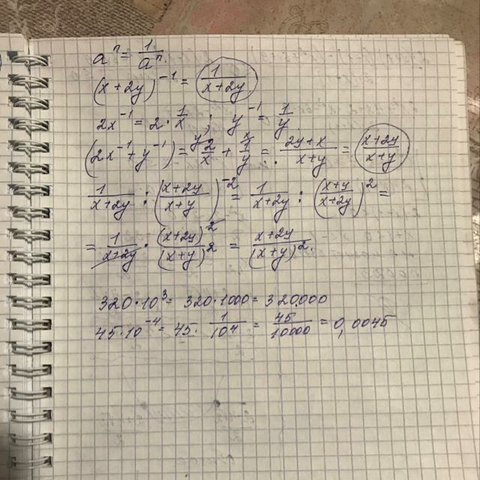 aⁿ = 1/aⁿ.
(x+2y)⁻¹ = 1/(x+2y)
2x⁻¹ = 2·1/x ; y⁻¹ = 1/y
(2x⁻¹+y⁻¹) = ʸ⁄2/x + ˣ⁄1/y = (2y+x)/(x+y) = (x+2y)/(x+y)
1/(x+2y) : ((x+2y)/(x+y))⁻² = 1/(x+2y) : ((x+y)/(x+2y))² =
= 1/(x+2y) · (x+2y)²/(x+y)² = (x+2y)/(x+y)².
320·10³ = 320·1000 = 320.000
45·10⁻⁴ = 45·1/10⁴ = 45/10000 = 0,0045